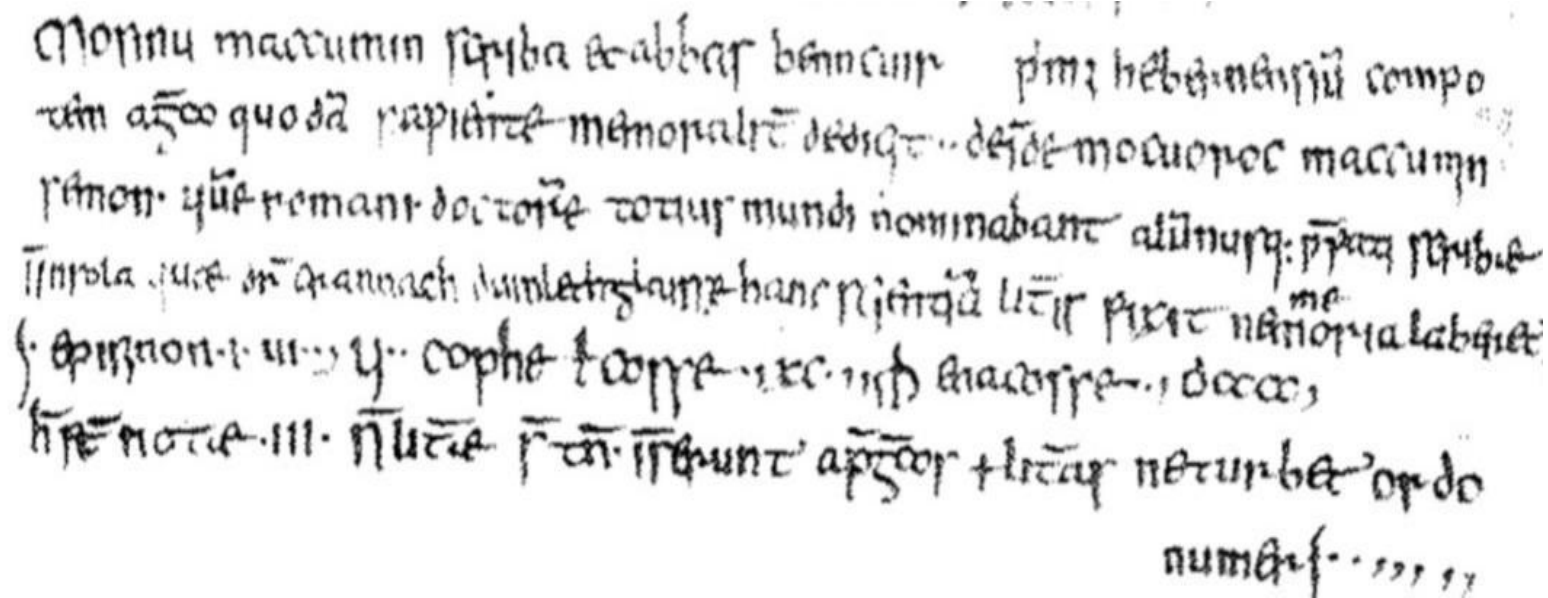 Mosinu maccumin scriba et abbas benncuir pm; hebernensiū compo
tem a g̅co quodā sapiente memoralit̄ dedicit·· dein̄de mocuoroc maccumin
semon· quē romani doctorē totius mundi nominabant alūnusq: p̄pati scribe
in̄ insola que dr̄ crannach duinlethglaisse hanc scientiā lit̄is fixit nememoria laberet'
episinon ·i· ui··, ϥ·· cophe ł cosse ·, xc ·,, ϡ enacosse ·, dcccc,
h̄ st̄ notae ·iii· n̄ lit̄ae s̄ tn̄· in̄serunt' ap̄ g̅cos ÷ lit̄as neturbet' ordo
numeri··,,, ,,